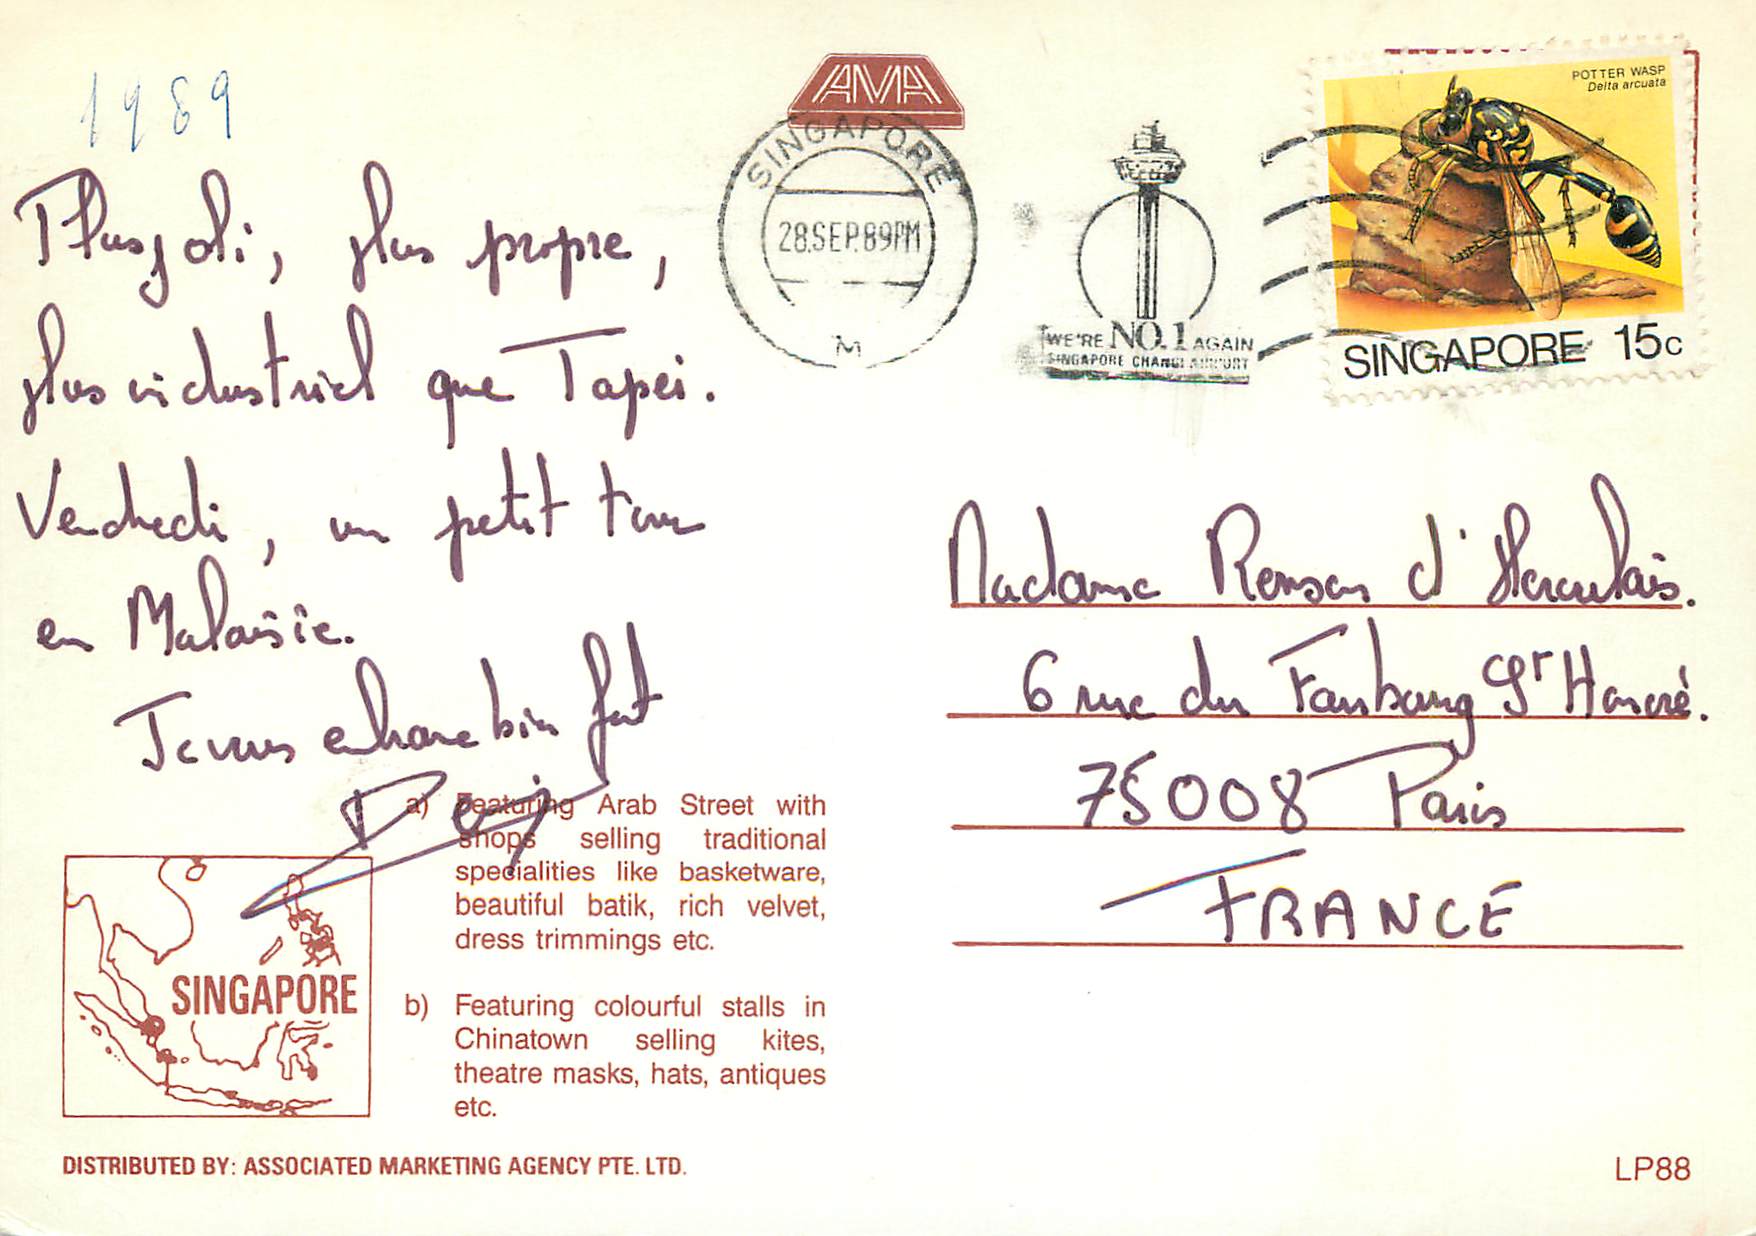 1989
AMA
SINGAPORE
28.SEP.89PM
M
WE'RE NO.1 AGAIN
SINGAPORE CHANGI AIRPORT
POTTER WASP
Delta arcuata
SINGAPORE 15c
Plus joli, plus propre,
plus industriel que Tapei.
Vendredi, un petit tour
en Malaisie.
Je vous embrasse bien fort
Madame Renson d'Herculais.
6 rue du Faubourg St Honoré.
75008 Paris
FRANCE
a) Featuring Arab Street with
shops selling traditional
specialities like basketware,
beautiful batik, rich velvet,
dress trimmings etc.
SINGAPORE
b) Featuring colourful stalls in
Chinatown selling kites,
theatre masks, hats, antiques
etc.
DISTRIBUTED BY: ASSOCIATED MARKETING AGENCY PTE. LTD.
LP88